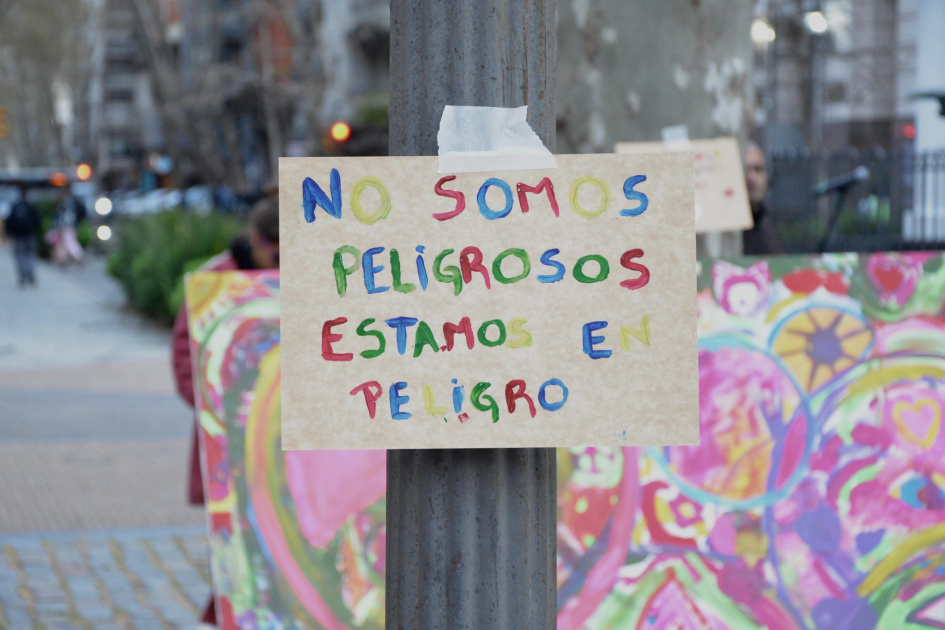 NO SOMOS
PELiGROSOS
ESTAMOS EN
PELiGRO